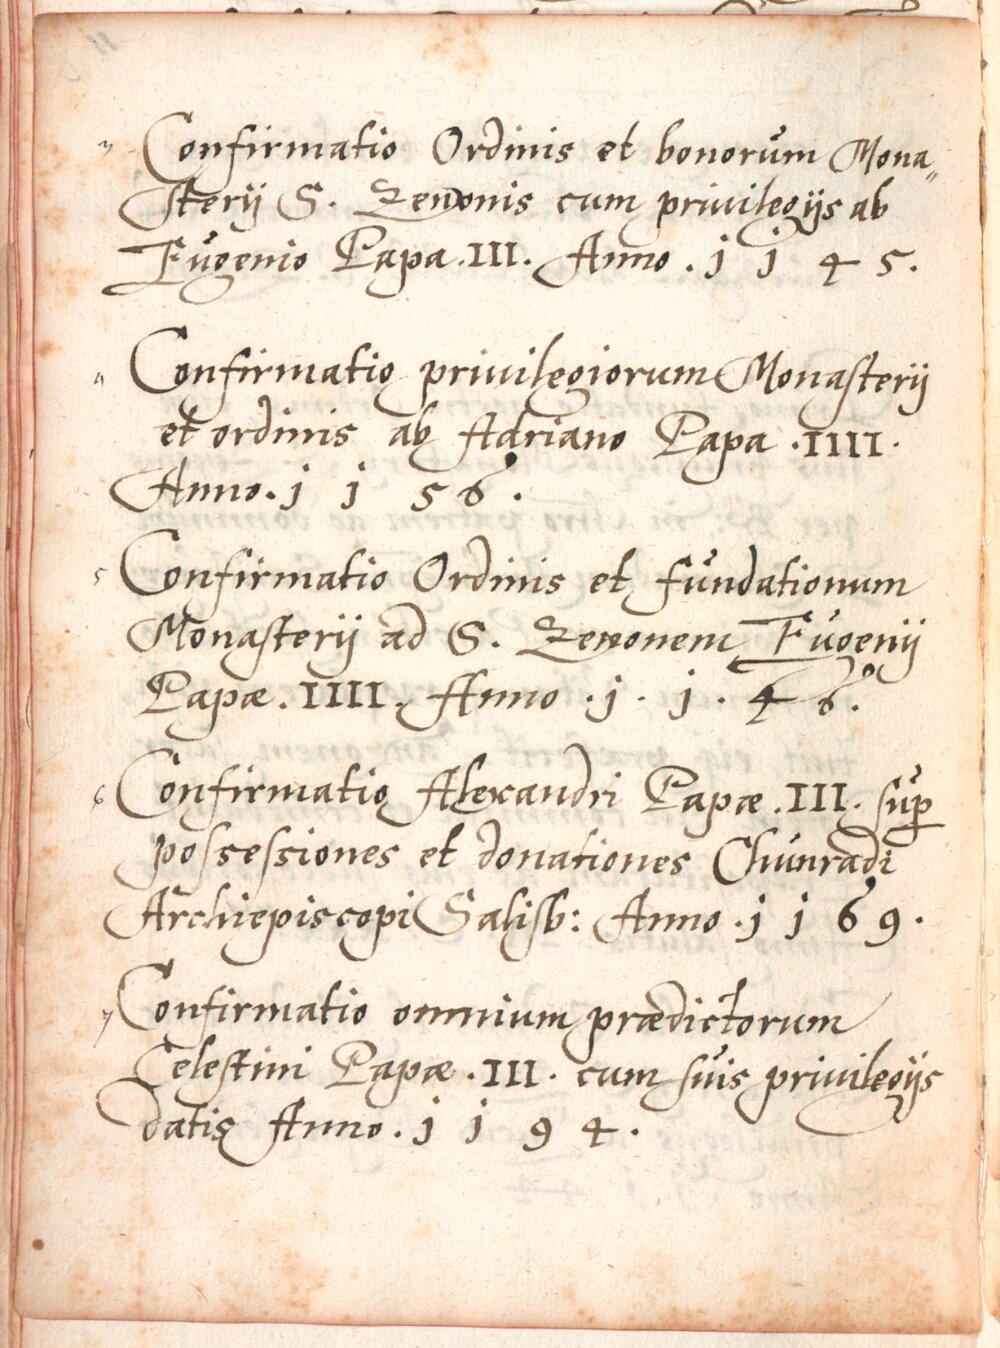 3 Confirmatio Ordinis et bonorum Mona„
sterij S. Zenonis cum privilegijs ab
Eugenio Papa .III. Anno . 1 1 4 5 .
4 Confirmatio privilegiorum Monasterij
et ordinis ab Adriano Papa .IIII.
Anno . 1 1 5 6 .
5 Confirmatio Ordinis et fundationum
Monasterij ad S. Zenonem Eugenij
Papæ . IIII . Anno . 1 . 1 . 4 6 .
6 Confirmatio Alexandri Papæ . III . sup
possessiones et donationes Chunradi
Archiepiscopi Salisb: Anno . 1 1 6 9 .
7 Confirmatio omnium prædictorum
Celestini Papæ . III . cum suis privilegijs
datis Anno . 1 1 9 4 .